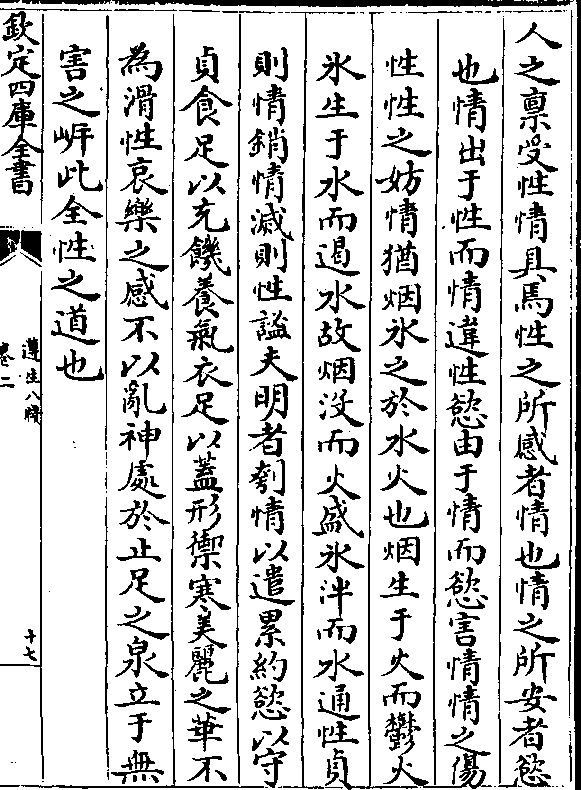 人之禀受性情具焉性之所感者情也情之所安者慾
也情出于性而情違性慾由于情而慾害情情之傷
性性之妨情猶烟氷之於水火也烟生于火而鬱火
氷生于水而遏水故烟沒而火盛氷泮而水通性貞
則情銷情滅則性謐夫明者刳情以遣累約慾以守
貞食足以充饑養氣衣足以蓋形禦寒美麗之華不
為滑性哀樂之感不以亂神處於止足之泉立于無
害之岍此全性之道也
欽定四庫全書
遵生八牋
卷二
十七